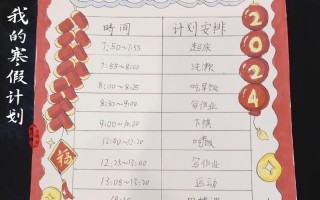 我的寒假计划
2024
时间 计划安排
7:50~7:55 起床
7:55~8:00 洗漱
8:00~8:25 吃早饭
8:30~9:00 写作业
9:00~10:20 下棋
12:00~12:20 吃饭
12:25~13:00 写作业
13:05~13:20 运动
福